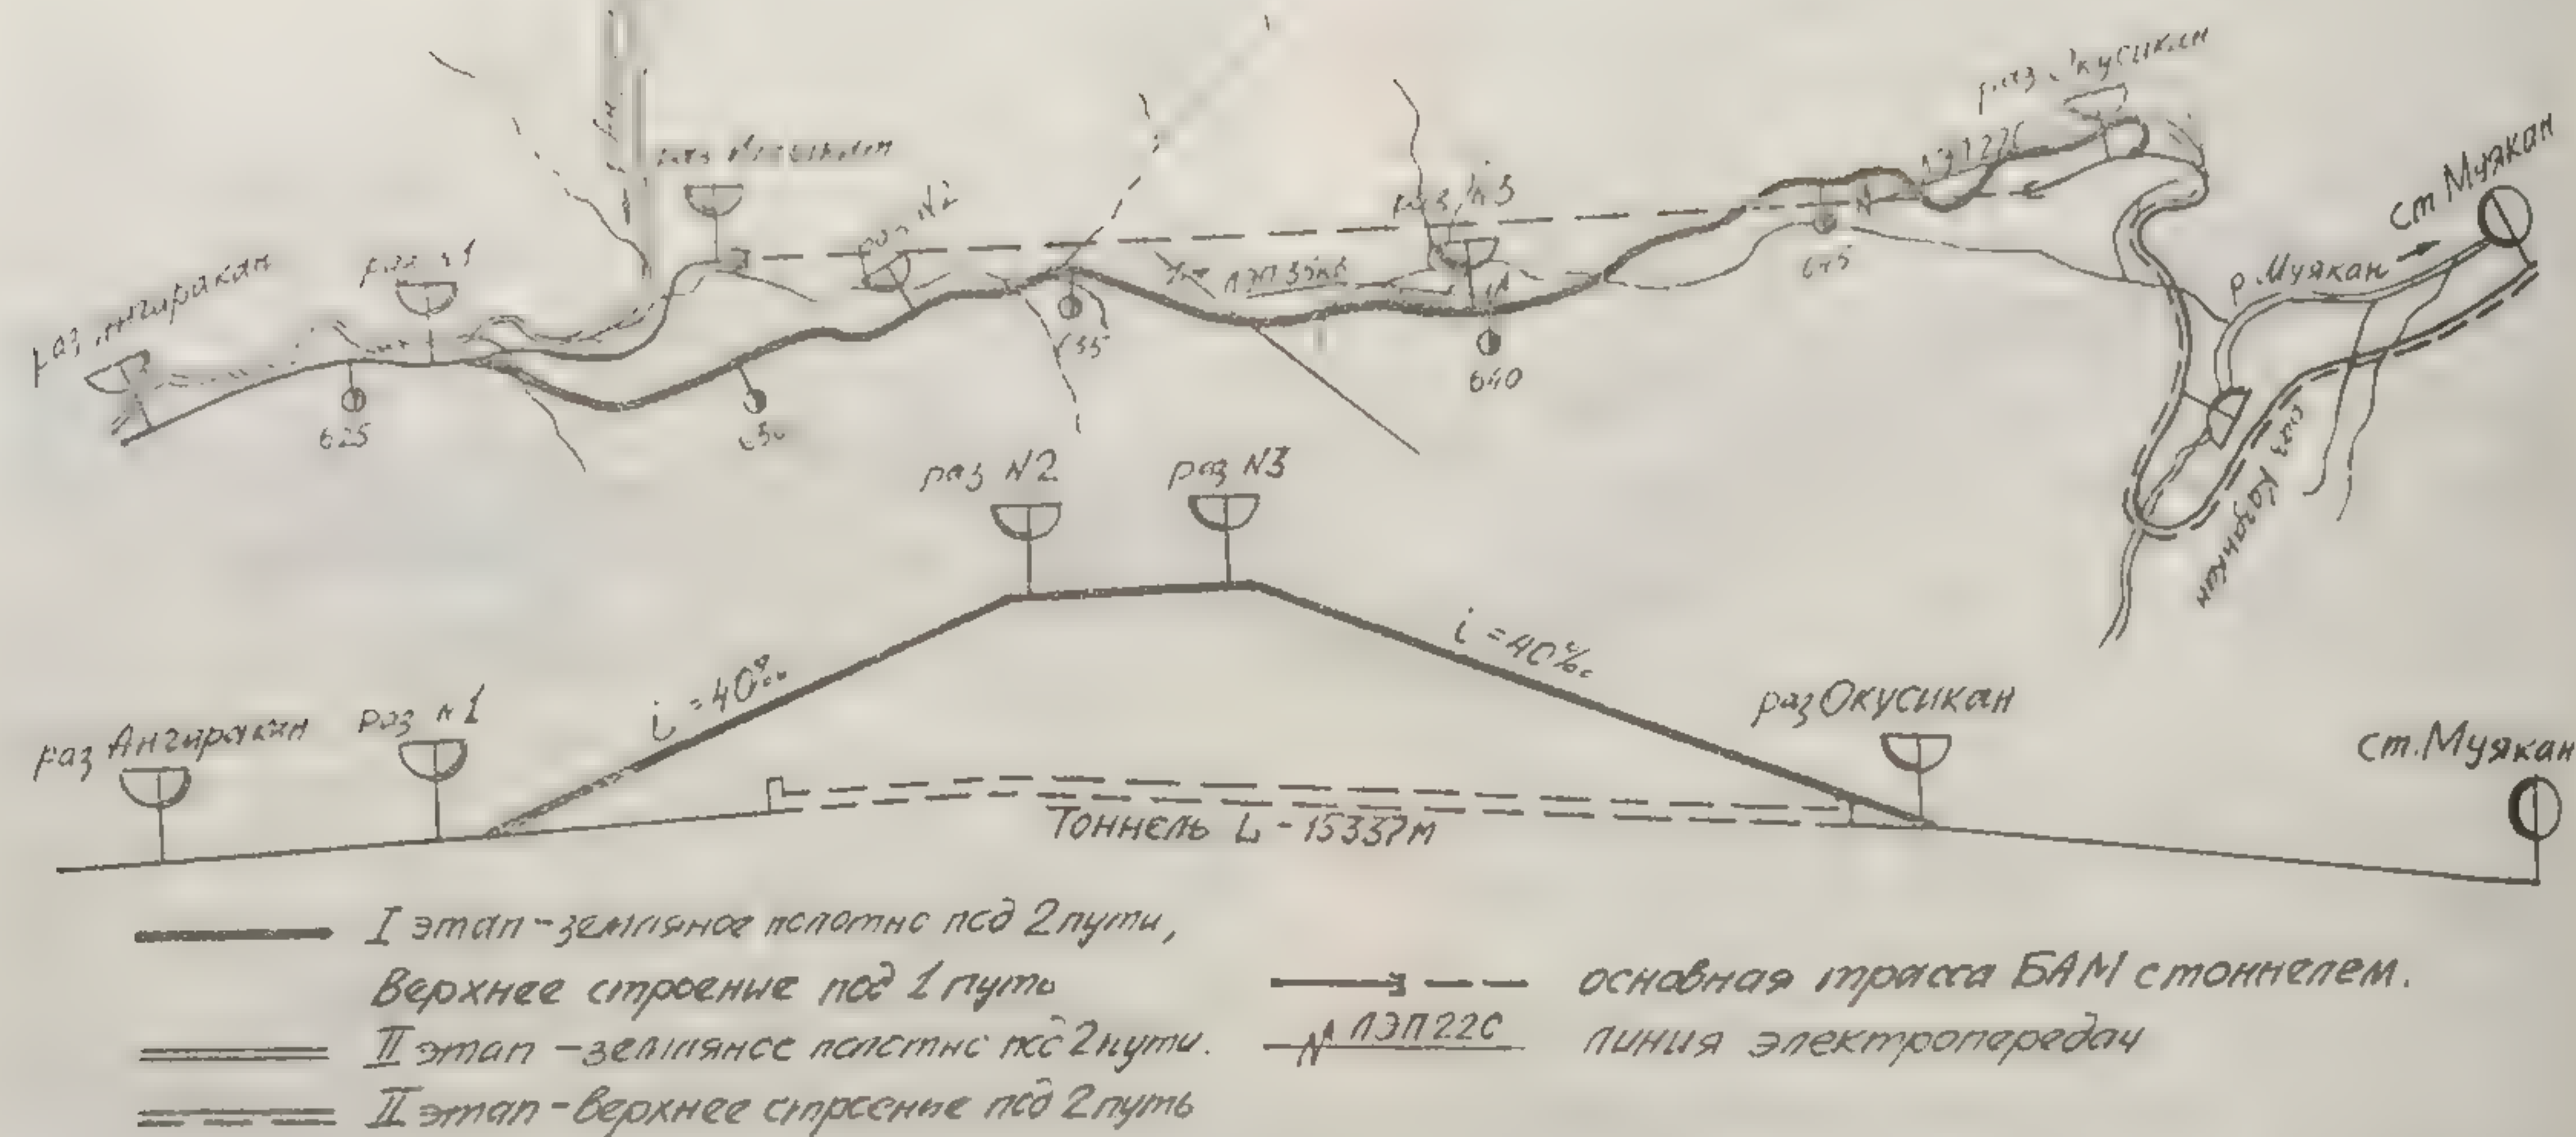 раз Окусикан
ст Муякан
раз N2
раз N3
раз N1
раз Ангиракан
ЛЭП 22С
р. Муякан
ЛЭП 35кВ
625
650
655
640
645
раз Казанкан
раз N2
раз N3
i = 40‰
i = 40‰
раз Ангиракан
раз N1
раз Окусикан
ст. Муякан
Тоннель L - 15337м
I этап - земляное полотно под 2 пути,
Верхнее строение под 1 путь
II этап - земляное полотно под 2 пути.
II этап - верхнее строение под 2 путь
основная трасса БАМ с тоннелем.
ЛЭП 22С линия электропередач